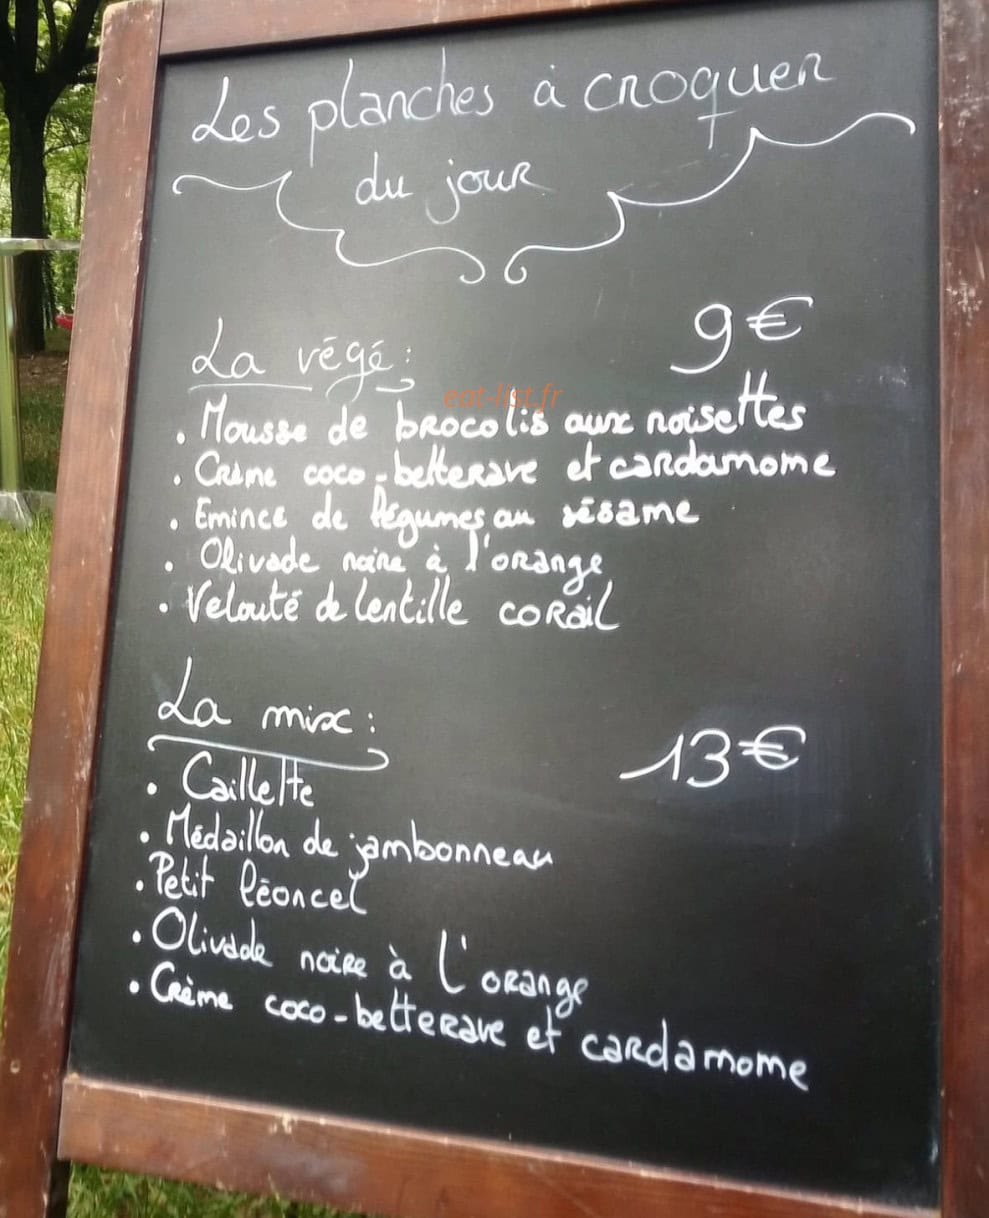 Les planches à croquer
du jour
La végé :
9€
eat-list.fr
. Mousse de brocolis aux noisettes
. Crème coco-betterave et cardamome
. Emincé de légumes au sésame
. Olivade noire à l'orange
. Velouté de lentille corail
La mix :
13€
. Caillette
. Médaillon de jambonneau
. Petit léoncel
. Olivade noire à l'orange
. Crème coco-betterave et cardamome